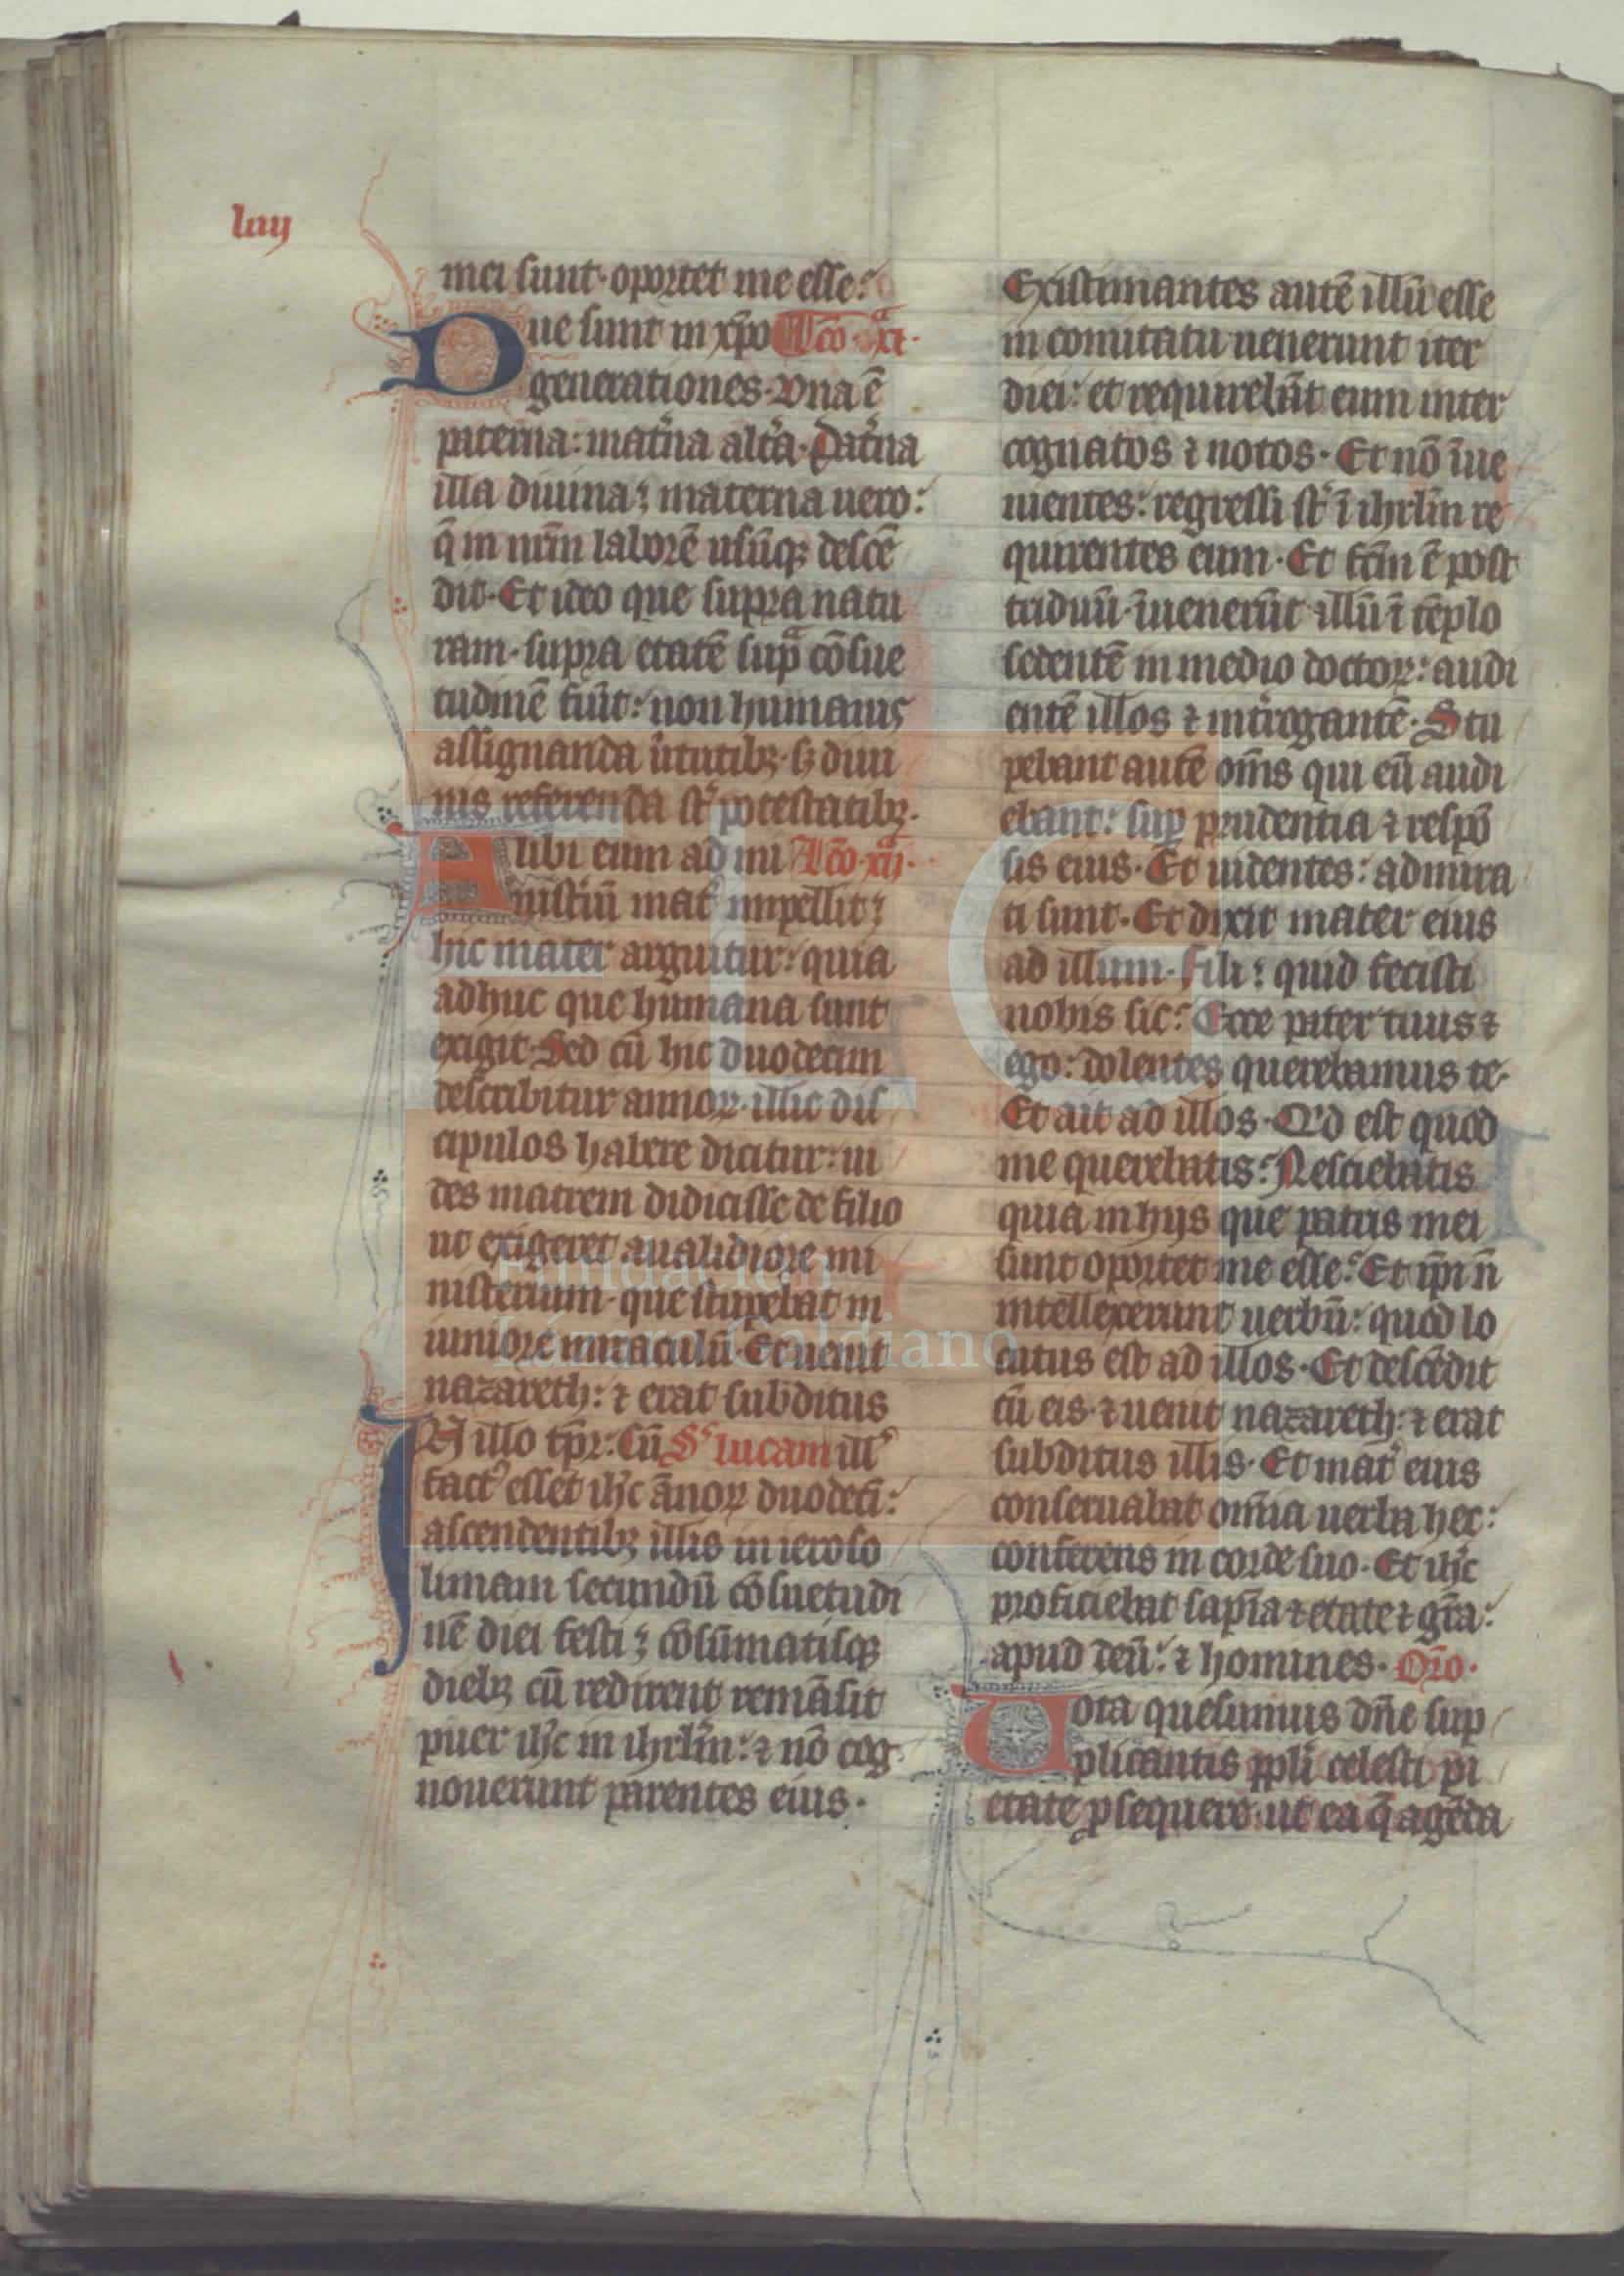 lxiij
mei sunt· oportet me esse:
Due sunt in xp̄o Lc̄o· xi·
generationes· Una ē
paterna: mat̓na alt̓a· Pat̓na
illa diuina; materna uero:
q̄ in nr̄m laborē usūqꝫ descē
dit· Et ideo que supra natu
ram· supra etatē sup̄ cōsue
tudinē fiūt: non humanis
assignanda u̓tutibꝫ· sꝫ diui
nis referenda st̓ potestatibꝫ·
Alibi eum ad mi Lc̄o· xij·
nist̓iū mat̓ impellit;
hic mater arguitur: quia
adhuc que humana sunt
exigit· Sed cū hic duodecim
describitur annoꝝ· illic dis
cipulos habere dicitur: ui
des matrem didicisse de filio
ut exigeret a ualidiore mi
nisterium· que stupebat in
iuniore miraculū· Et uenit
nazareth: ⁊ erat subditus
IN illo tp̄r: Cū S' lucam ill'
fact' esset ih̓c ānoꝝ duodeci̅:
ascendentibꝫ illis in ieroso
limam secundū cōsuetudi
nē diei festi; cōsūmatisqꝫ
diebꝫ cū redirent remāsit
puer ih̓c in ihrl̄m: ⁊ nō cog
nouerunt parentes eius·
Existimantes autē illū esse
in comitatu uenerunt iter
diei: et requirebāt eum inter
cognatos ⁊ notos· Et nō īue
nientes: regressi st̓ ī ihrl̄m re
quirentes eum· Et fc̄m ē post
triduū· īuenerūt illū ī tēplo
sedentē in medio doctoꝝ: audi
entē illos ⁊ int̓rogantē· Stu
pebant autē om̄s qui eū audi
ebant: sup̲ prudentia ⁊ respō
sis eius· Et uidentes: admira
ti sunt· Et dixit mater eius
ad illum· Fili: quid fecisti
nobis sic: Ecce pater tuus ⁊
ego: dolentes querebamus te·
Et ait ad illos· Q'd est quod
me querebatis: Nesciebatis
quia in hijs que patris mei
sunt oportet me esse: Et ip̄i n̄
intellexerunt uerbū: quod lo
cutus est ad illos· Et descēdit
cū eis· ⁊ uenit nazareth: ⁊ erat
subditus illis· Et mat̓ eius
conseruabat om̄ia uerba hec:
conferens in corde suo· Et ih̓c
proficiebat sap̄ia ⁊ etate ⁊ gr̄a:
apud deū: ⁊ homines· Or̄o·
Uota quesumus dn̄e sup
plicantis pp̄li celesti pi
etate ꝓsequere: ut ea q̄ agēda
FLG
Fundación
Lázaro Galdiano